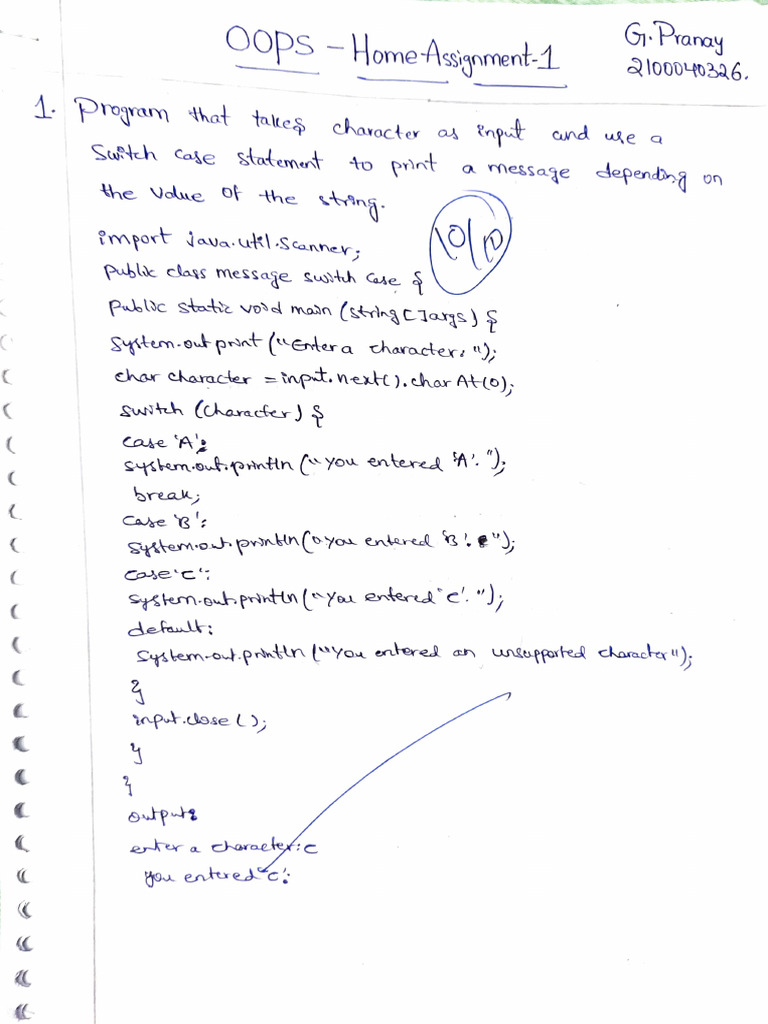 OOPS - Home Assignment-1
G. Pranay
2100040326.
1. Program that takes character as input and use a
Switch case statement to print a message depending on
the value of the string.
10/10
import java.util.Scanner;
Public class message switch case {
Public static void main (string[]args) {
System.out print ("Enter a character: ");
char character = input.next().charAt(0);
switch (character) {
case 'A':
system.out.println ("you entered 'A'. ");
break;
case 'B':
system.out.println ("you entered 'B'. ");
case 'c':
system.out.println ("you entered 'c'. ");
default:
system.out.println ("you entered an unsupported character");
}
input.close ();
}
}
output:
enter a character: c
you entered 'c'.